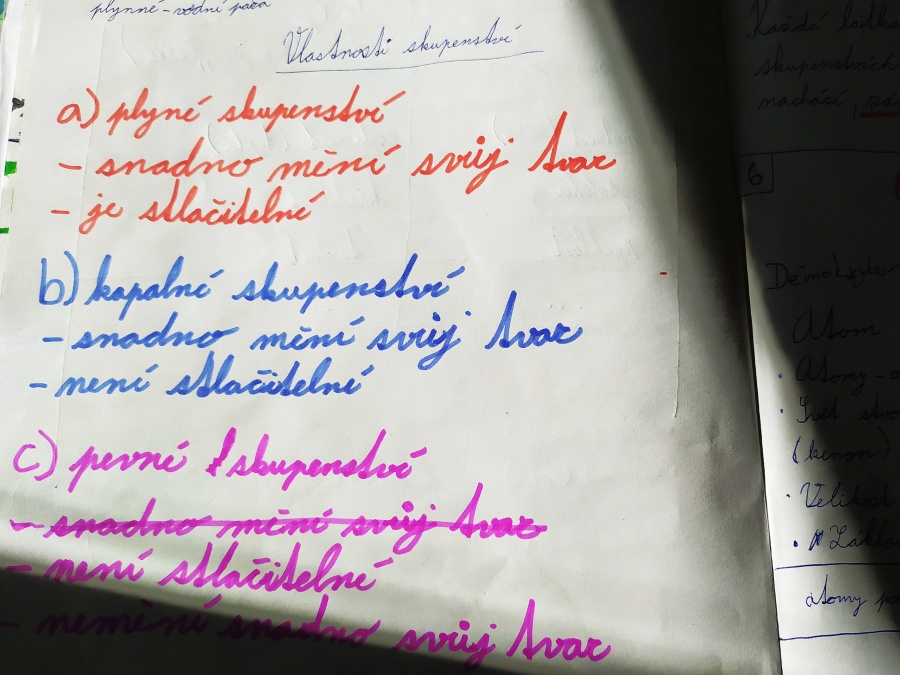 plynné - vodní pára
Vlastnosti skupenství
a) plyné skupenství
- snadno mění svůj tvar
- je stlačitelné
b) kapalné skupenství
- snadno mění svůj tvar
- není stlačitelné
c) pevné skupenství
- snadno mění svůj tvar
- není stlačitelné
- nemění snadno svůj tvar
Každá látka
skupenstvích
nachází,
6
Atom
• Atomy -
• Svět
•
• Velikost
•
atomy